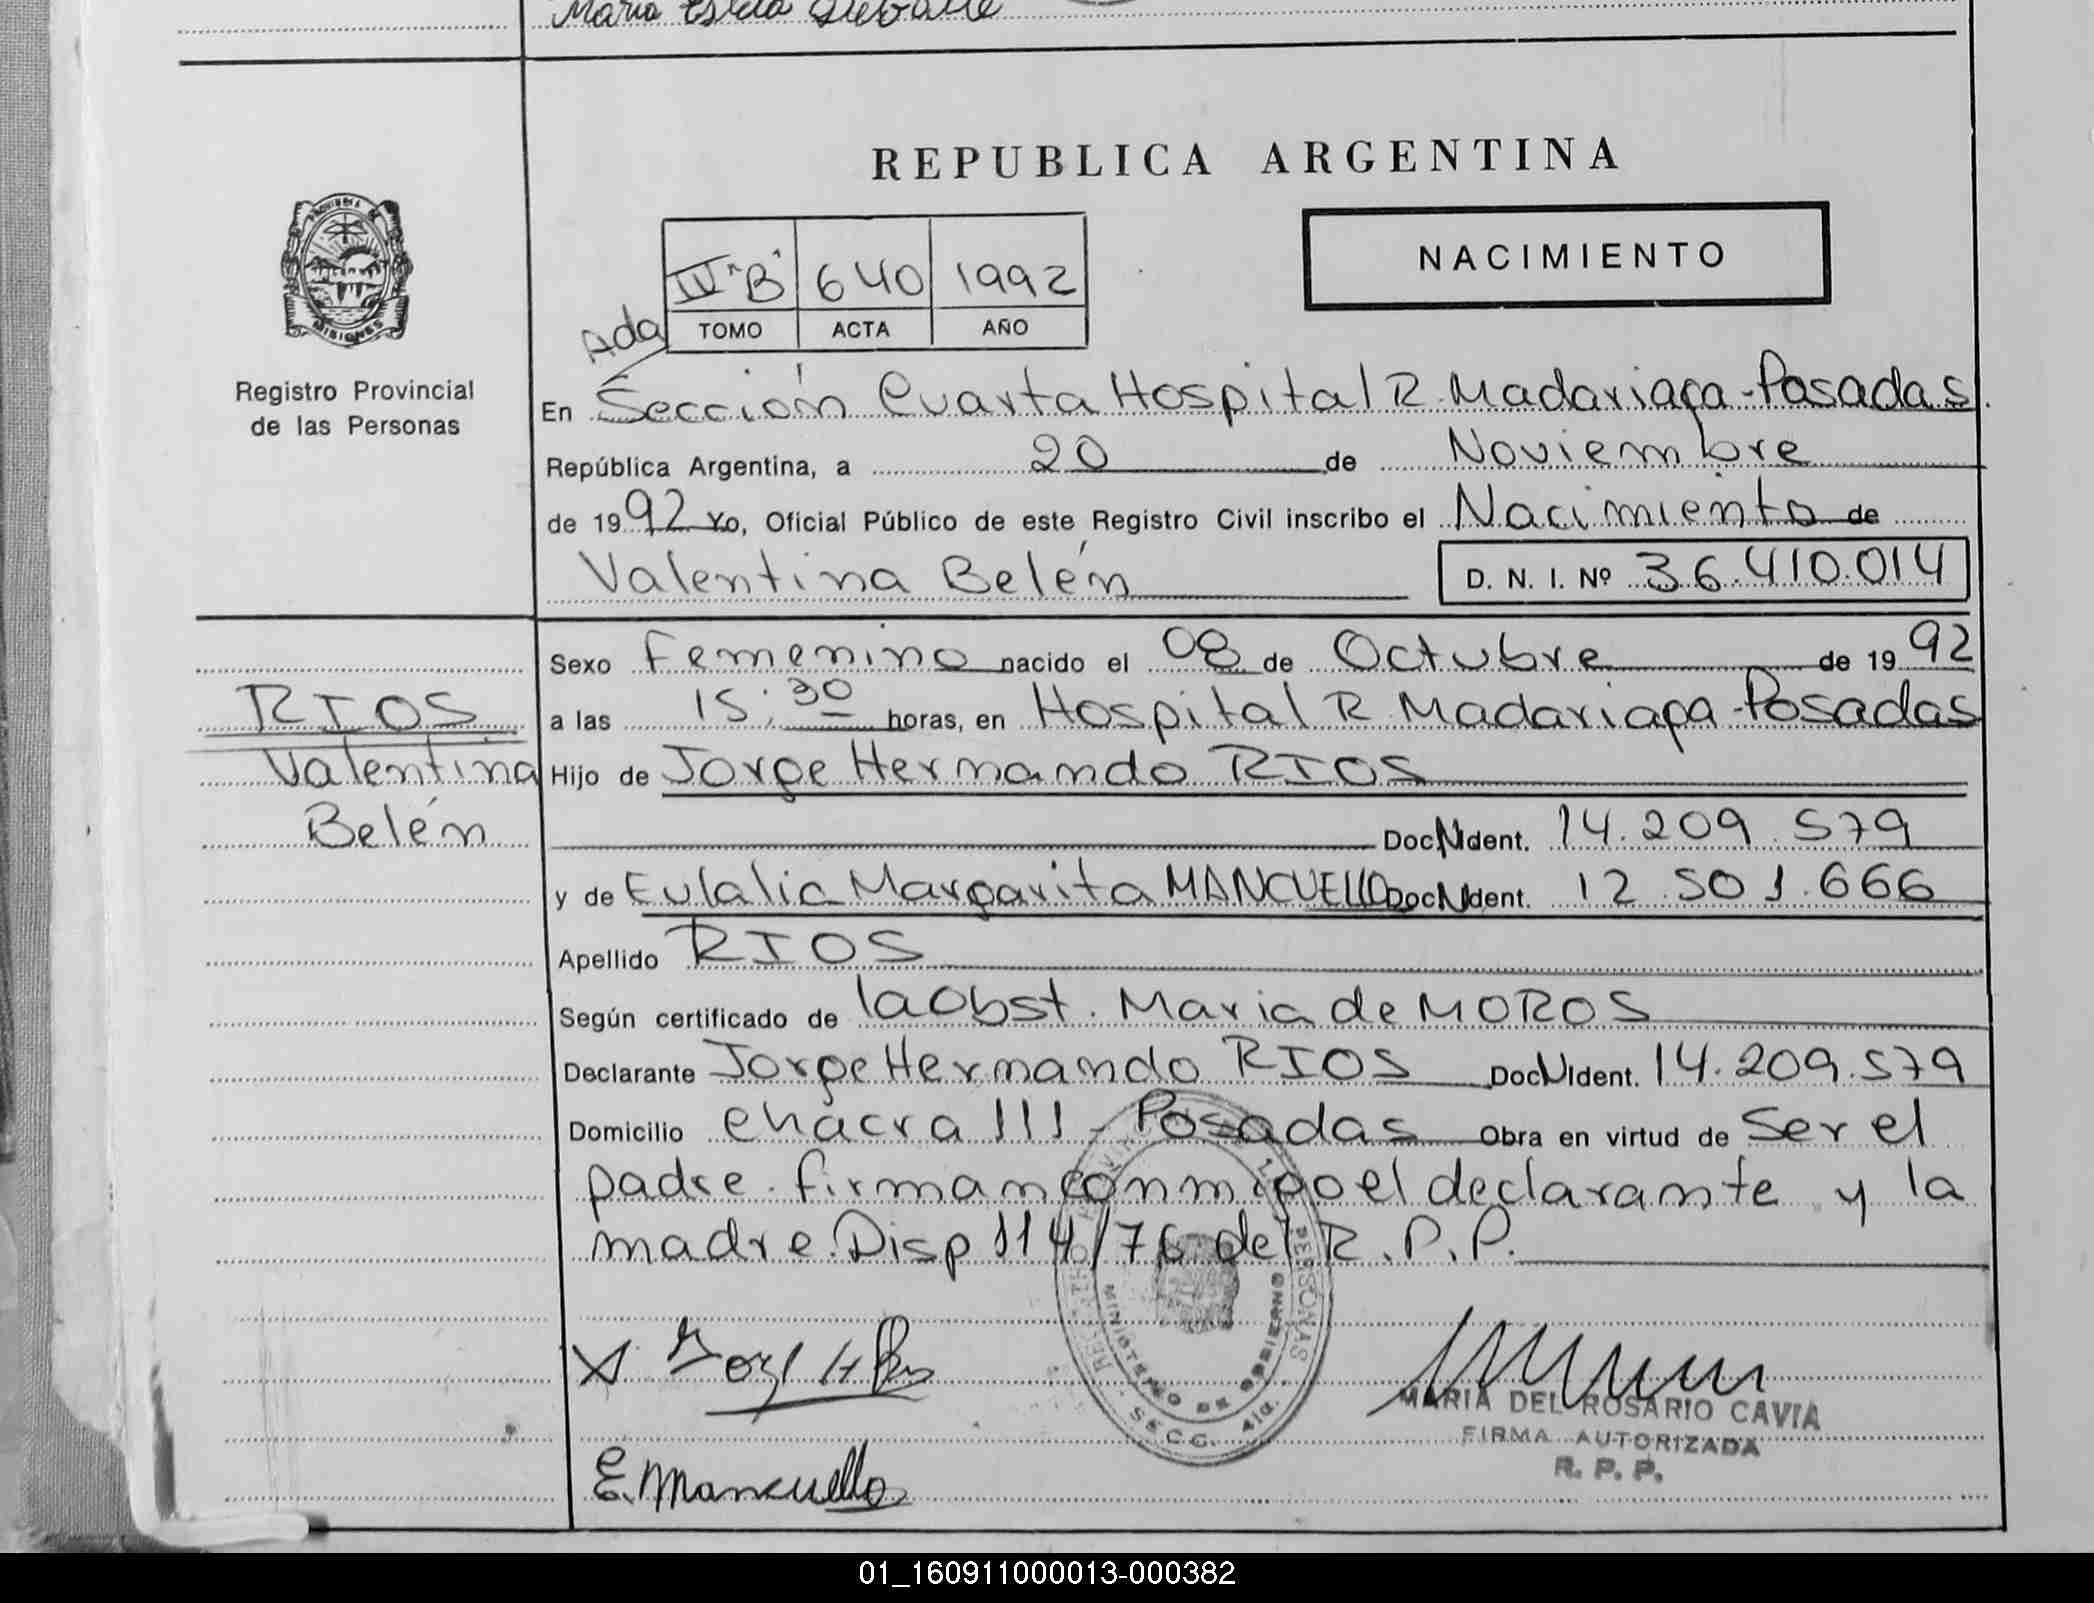 Maria Estela
REPUBLICA ARGENTINA
PROVINCIA DE
MISIONES
Registro Provincial
de las Personas
NACIMIENTO
IV "B" 640 1992
TOMO ACTA AÑO
Ada
En Sección Cuarta Hospital R. Madariaga - Posadas.
República Argentina, a 20 de Noviembre
de 1992 Yo, Oficial Público de este Registro Civil inscribo el Nacimiento de
Valentina Belén D. N. I. Nº 36.410.014
Sexo Femenino nacido el 08 de Octubre de 1992
RIOS
Valentina
Belén
a las 15:30 horas, en Hospital R. Madariaga - Posadas
Hijo de Jorge Hernando RIOS
Doc N Ident. 14.209.579
y de Eulalia Margarita MANCUELLO Doc N Ident. 12.501.666
Apellido RIOS
Según certificado de la Obst. Maria de MOROS
Declarante Jorge Hernando RIOS Doc N Ident. 14.209.579
Domicilio chacra 111 - Posadas Obra en virtud de Ser el
padre. firman conmigo el declarante y la
madre. Disp 114/76 del R.P.P.
MINISTERIO DE GOBIERNO
PERSONAS
SECC. 4ta.
E. Mancuello
MARIA DEL ROSARIO CAVIA
FIRMA AUTORIZADA
R. P. P.
01_160911000013-000382